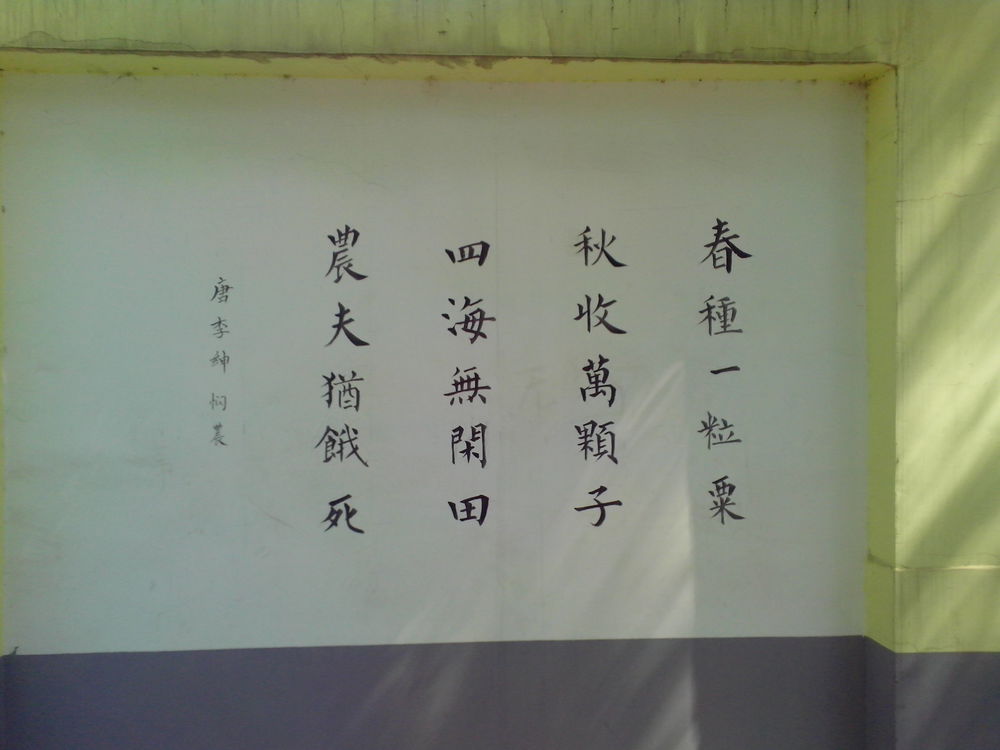 春種一粒粟
秋收萬顆子
四海無閑田
農夫猶餓死
唐李紳 悯農